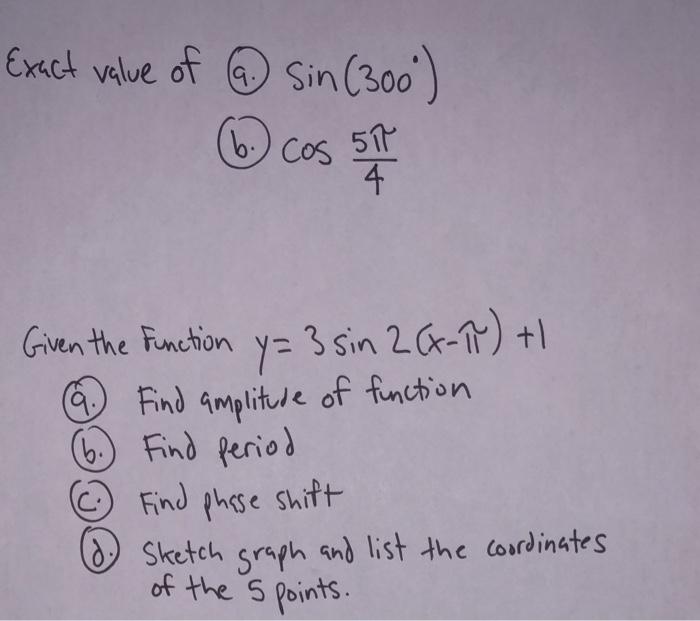 Exact value of (a.) sin(300°)
(b.) cos 5π/4
Given the Function y = 3 sin 2(x-π) +1
(a.) Find amplitude of function
(b.) Find period
(c.) Find phase shift
(d.) Sketch graph and list the coordinates
of the 5 points.